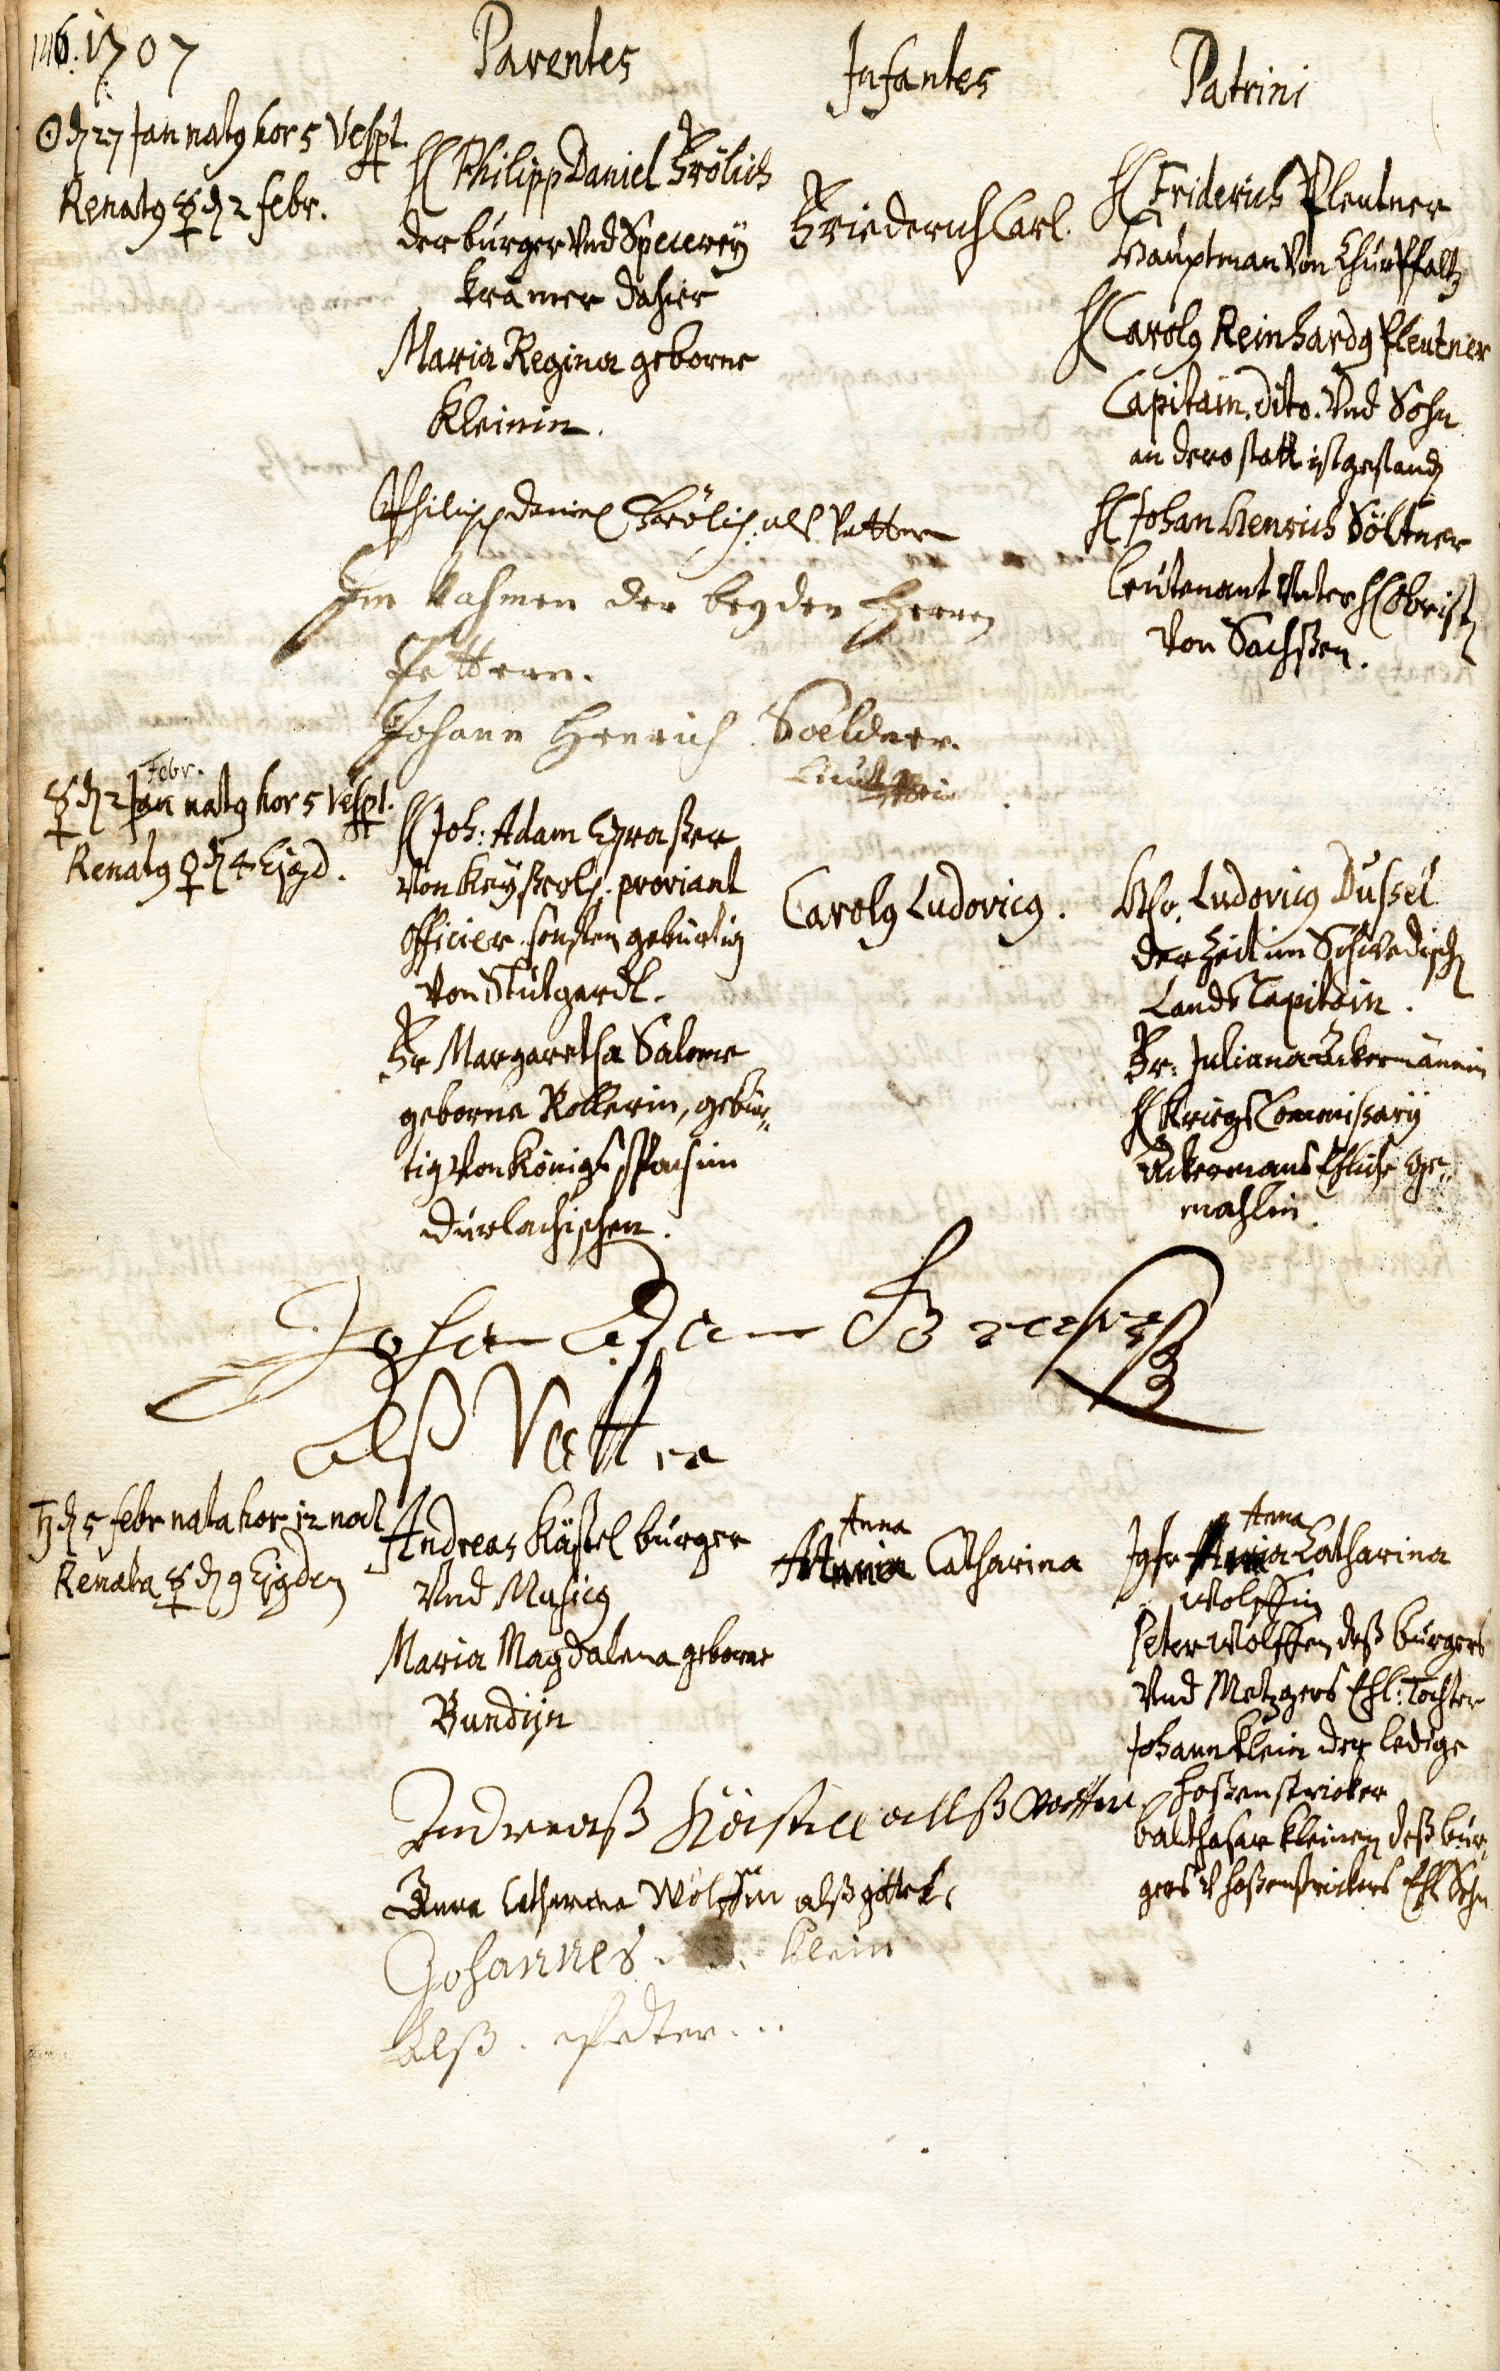 146. 1707
Parentes
Infantes
Patrini
☉ d 27 Jan natg hor 5 Vespt.
Renatg ☿ d 2 febr.
H Philipp Daniel Frölich
der burger Vnd Specerey
krämer dahier
Maria Regina geborne
Kleinin.
Friederich Carl.
H Friderich Pleutner
Hauptman Von Churpfaltz
H Carolg Reinhardg Pleutner
Capitain. dito. Vnd Sohn
an dero statt ist gestand
H Johan Henrich Söltner
Leutenant Unter H Obrist
Von Sachßen.
Philipp Daniel Frölich als Vatter
Im Nahmen der beyden Herren
Pettern.
Johann Henrich Soeldner.
Febr.
☿ d 2 Jan natg hor 5 Vespt.
Renatg ♀ d 4 Ejgd.
H Joh: Adam Graßer
Von Keyßerl. proviant
officier. sonsten gebürtig
Von Stutgardt.
Fr Margaretha Salome
geborne Rollerin, gebür„
tig Von Königs
Durlachischen.
Carolg Ludovicg.
Hr. Ludovicg Dussel
der Zeit im Schwedisch
Lands Capitain.
Fr. Juliana Ackermännin
H Kriegs Commissarij
Ackermans Ehliche Ge„
mahlin
Johan Adam
alß Vatter
♄ d 5 febr nata hor 12 noct
Renata ☿ d 9 Ejgdem
Andreas Kästel burger
Vnd Musicg
Maria Magdalena geborne
Bundijn
Anna
Maria Catharina
Anna
Jgfr Maria Catharina
Wolffin
Peter Wolffen deß burgers
Vnd Metzgers Ehl: Tochter
Johann Klein der ledige
hoßenstricker
balthasar Kleinen deß bur„
gers v hoßenstrickers Ehl Sohn
Andreaß Kästel allß Vatter
Anna Catharina Wolffin alß göttel
Johannes Klein
Alß. Petter...